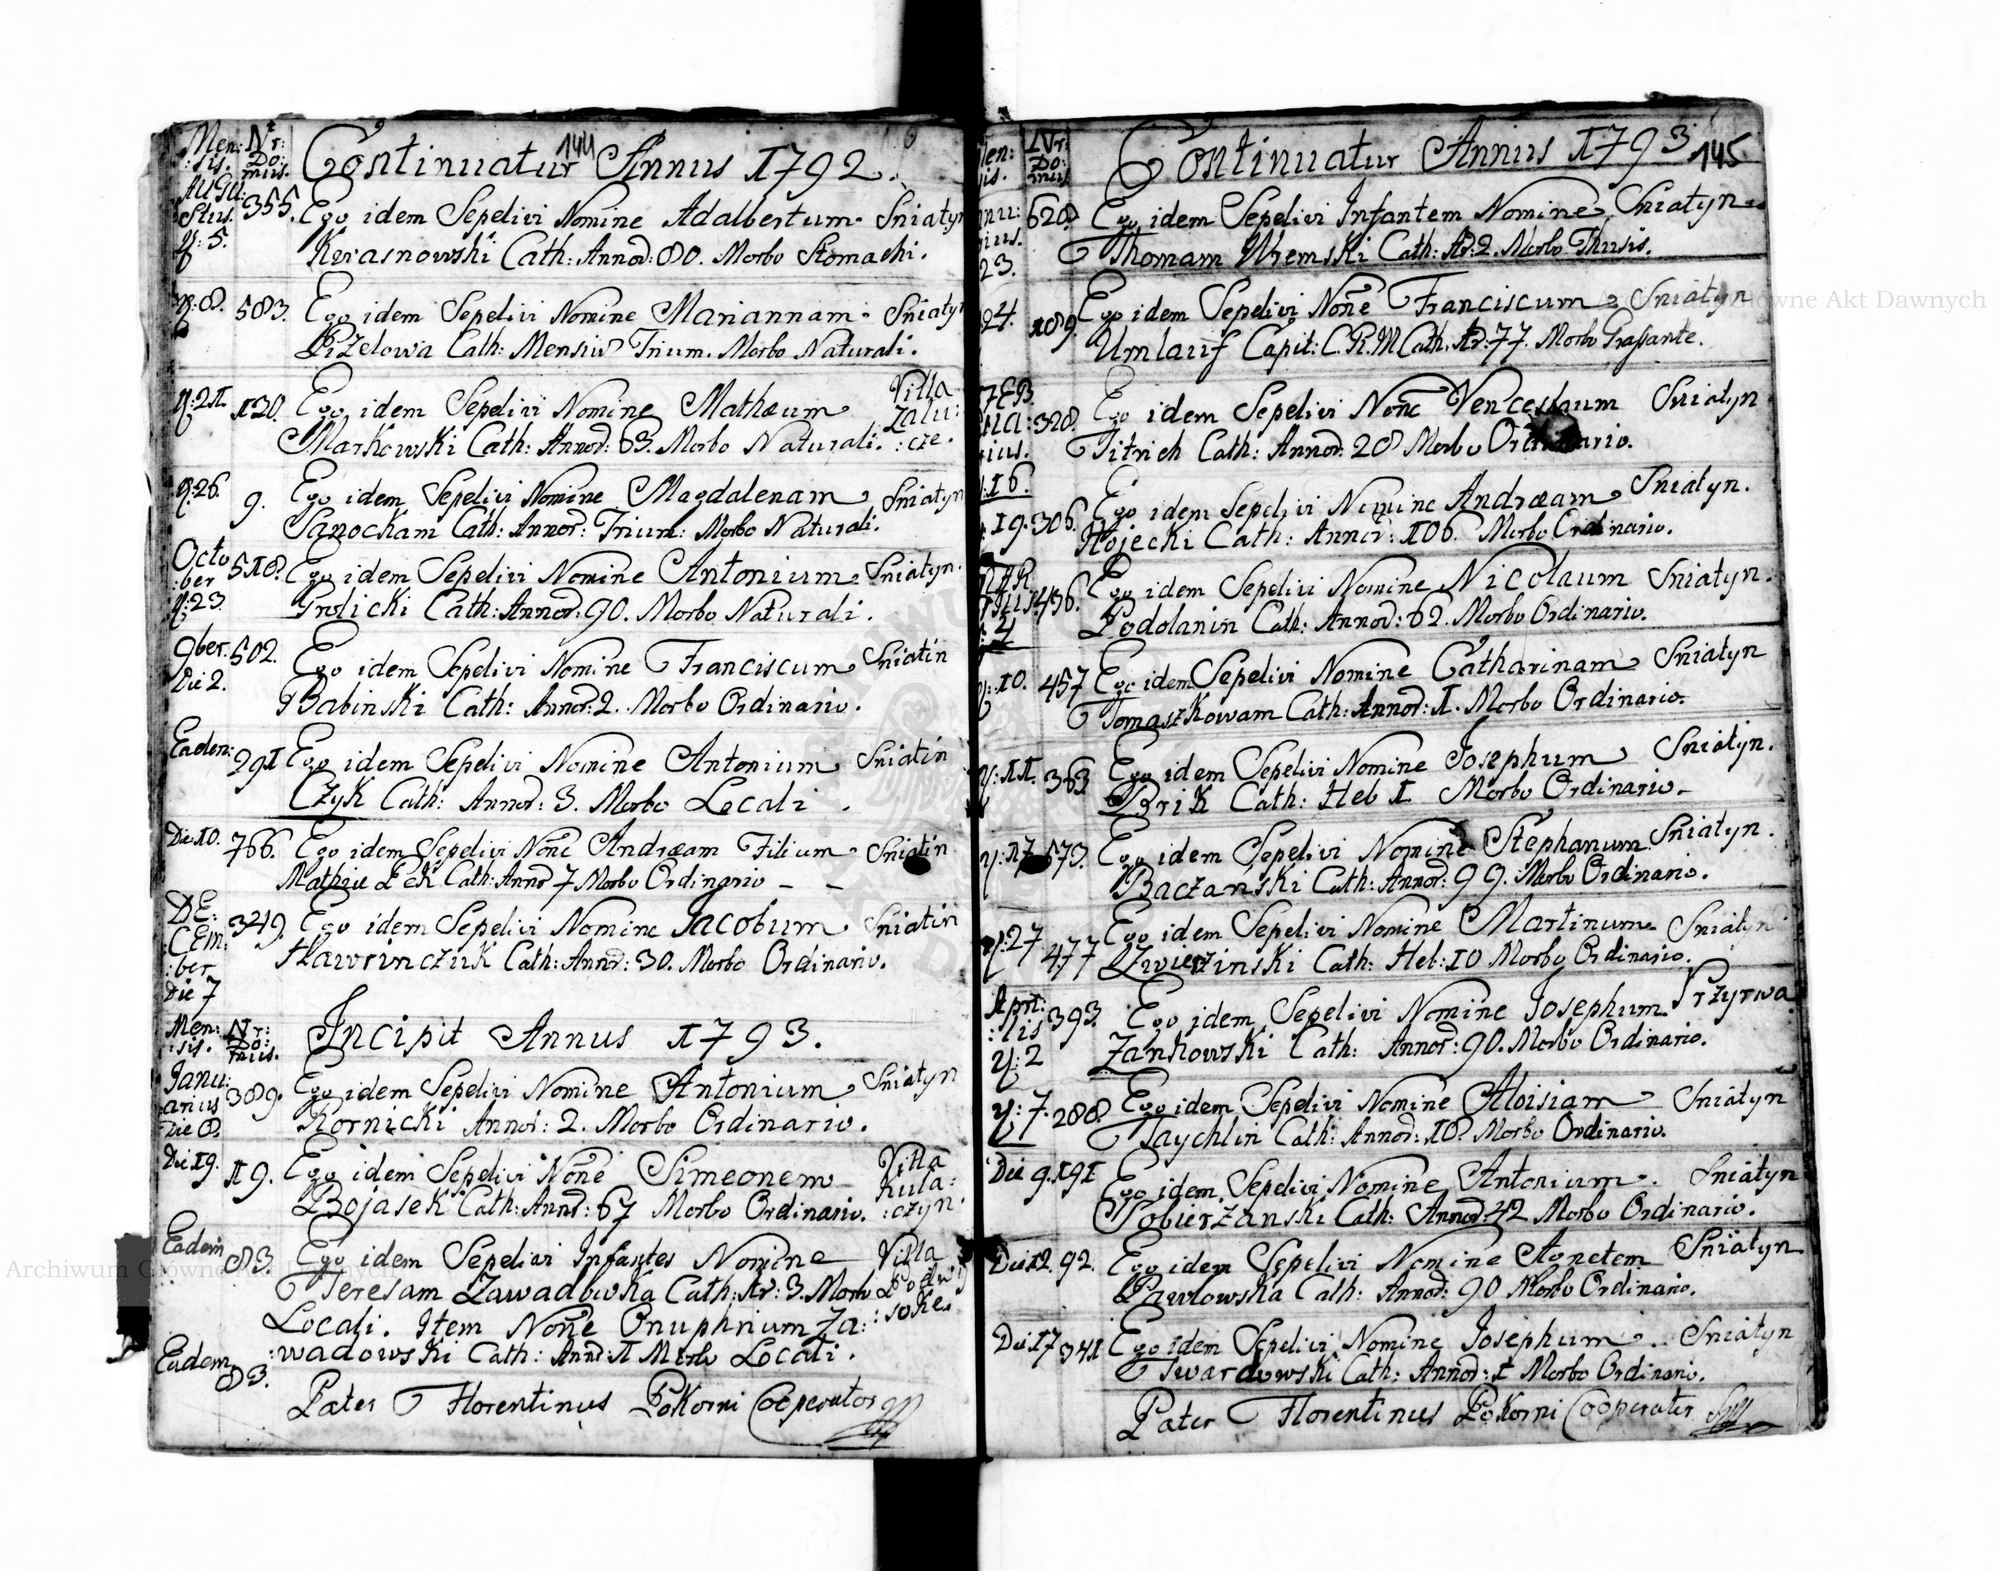 Men: Nr:
:sis. Do:
mus.
144
Continuatur Annus 1792.
AUGU: 355. Ego idem Sepelivi Nomine Adalbertum Sniatyn
Stus.
y: 5. Kwasnowski Cath: Annor: 80. Morbo Stomachi.
y: 8. 583. Ego idem Sepelivi Nomine Mariannam Sniatyn
Pizelowa Cath: Mensiu Trium. Morbo Naturali.
y: 21. 130. Ego idem Sepelivi Nomine Mathæum Villa
Zalu:
Markowski Cath: Annor: 63. Morbo Naturali. :cze.
y: 26. 9. Ego idem Sepelivi Nomine Magdalenam Sniatyn
Sanockam Cath: Annor: Trium: Morbo Naturali.
Octo 518. Ego idem Sepelivi Nomine Antonium Sniatyn.
:ber
y: 23. Grolicki Cath: Annor: 90. Morbo Naturali.
9ber. 502. Ego idem Sepelivi Nomine Franciscum Sniatin
Die 2. Babinski Cath: Annor: 2. Morbo Ordinario.
Eadem: 291 Ego idem Sepelivi Nomine Antonium Sniatin
Czyk Cath: Annor: 3. Morbo Locali.
Die 10. 766. Ego idem Sepelivi Noñe Andræam Filium Sniatin
Mathiæ Lek Cath: Annor 7 Morbo Ordinario – –
DE: 349. Ego idem Sepelivi Nomine Jacobum Sniatin
:CEM:
:ber Hawrinczuk Cath: Annor: 30. Morbo Ordinario.
Die 7
Men: Nr: Incipit Annus 1793.
:sis. Do:
mus.
Janu: 389. Ego idem Sepelivi Nomine Antonium Sniatyn
arius
Die 8. Kornicki Annor: 2. Morbo Ordinario.
Die 19. 19. Ego idem Sepelivi Noñe Simeonem Villa
Kula:
Bojasek Cath: Annor: 67 Morbo Ordinario. :czyn
Eadem 83. Ego idem Sepelivi Infantes Nomine Villa
Teresam Zawadowska Cath: Ar: 3. Morbo Podwy
Locali. Item Noñe Onuphrium Za: :soke
Eadem 83. :wadowski Cath: Annor: 1 Morbo Locali.
Pater Florentinus Pokorni Cooperator
Nr:
Do:
mus
Continuatur Annus 1793
145
628 Ego idem Sepelivi Infantem Nomine Sniatyn
23. Thomam Cath: Ar: 2. Morbo Thusis.
24. 189. Ego idem Sepelivi Noñe Franciscum Sniatyn
Umlauf Capit: C. R. M Cath. Ar: 77. Morbo Grassante.
328. Ego idem Sepelivi Noñe Venceslaum Sniatyn
Titrich Cath: Annor: 28 Morbo Ordinario.
:16.
19. 306. Ego idem Sepelivi Nomine Andræam Sniatyn.
Hojecki Cath: Annor: 106. Morbo Ordinario.
436. Ego idem Sepelivi Nomine Nicolaum Sniatyn.
4 Podolanin Cath: Annor: 62. Morbo Ordinario.
y: 10. 457 Ego idem Sepelivi Nomine Catharinam Sniatyn
Tomaszkowam Cath: Annor: 1. Morbo Ordinario.
y: 11. 363 Ego idem Sepelivi Nomine Josephum Sniatyn.
Brik Cath: Heb 1 Morbo Ordinario.
y: 17 573. Ego idem Sepelivi Nomine Stephanum Sniatyn.
Baczanski Cath: Annor: 99. Morbo Ordinario.
y: 27 477 Ego idem Sepelivi Nomine Martinum Sniatyn
Zwierzinski Cath: Heb: 10 Morbo Ordinario.
Apri: 393. Ego idem Sepelivi Nomine Josephum Przyrwa
:lis
y: 2 Zankowski Cath: Annor: 90. Morbo Ordinario.
y: 7. 288. Ego idem Sepelivi Nomine Aloisiam Sniatyn
Taychlin Cath: Annor: 18. Morbo Ordinario.
Die 9. 191. Ego idem Sepelivi Nomine Antonium. Sniatyn
Sobierzanski Cath: Annor: 42 Morbo Ordinario.
Die 12. 92. Ego idem Sepelivi Nomine Agnetem Sniatyn
Pawlowska Cath: Annor: 90 Morbo Ordinario.
Die 17 341 Ego idem Sepelivi Nomine Josephum Sniatyn
Twardowski Cath: Annor: 1 Morbo Ordinario.
Pater Florentinus Pokorni Cooperator
Archiwum Główne Akt Dawnych
Archiwum Główne Akt Dawnych